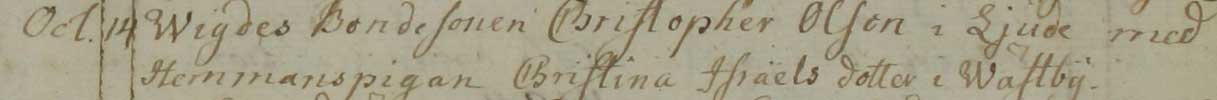 Oct. 14 Wigdes Bondesonen Christopher Olson i Ljude med
Hemmanspigan Christina Israels dotter i Wästbÿ.